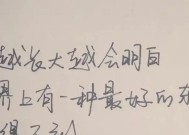 越长大越会明白
界上有一种最好的东